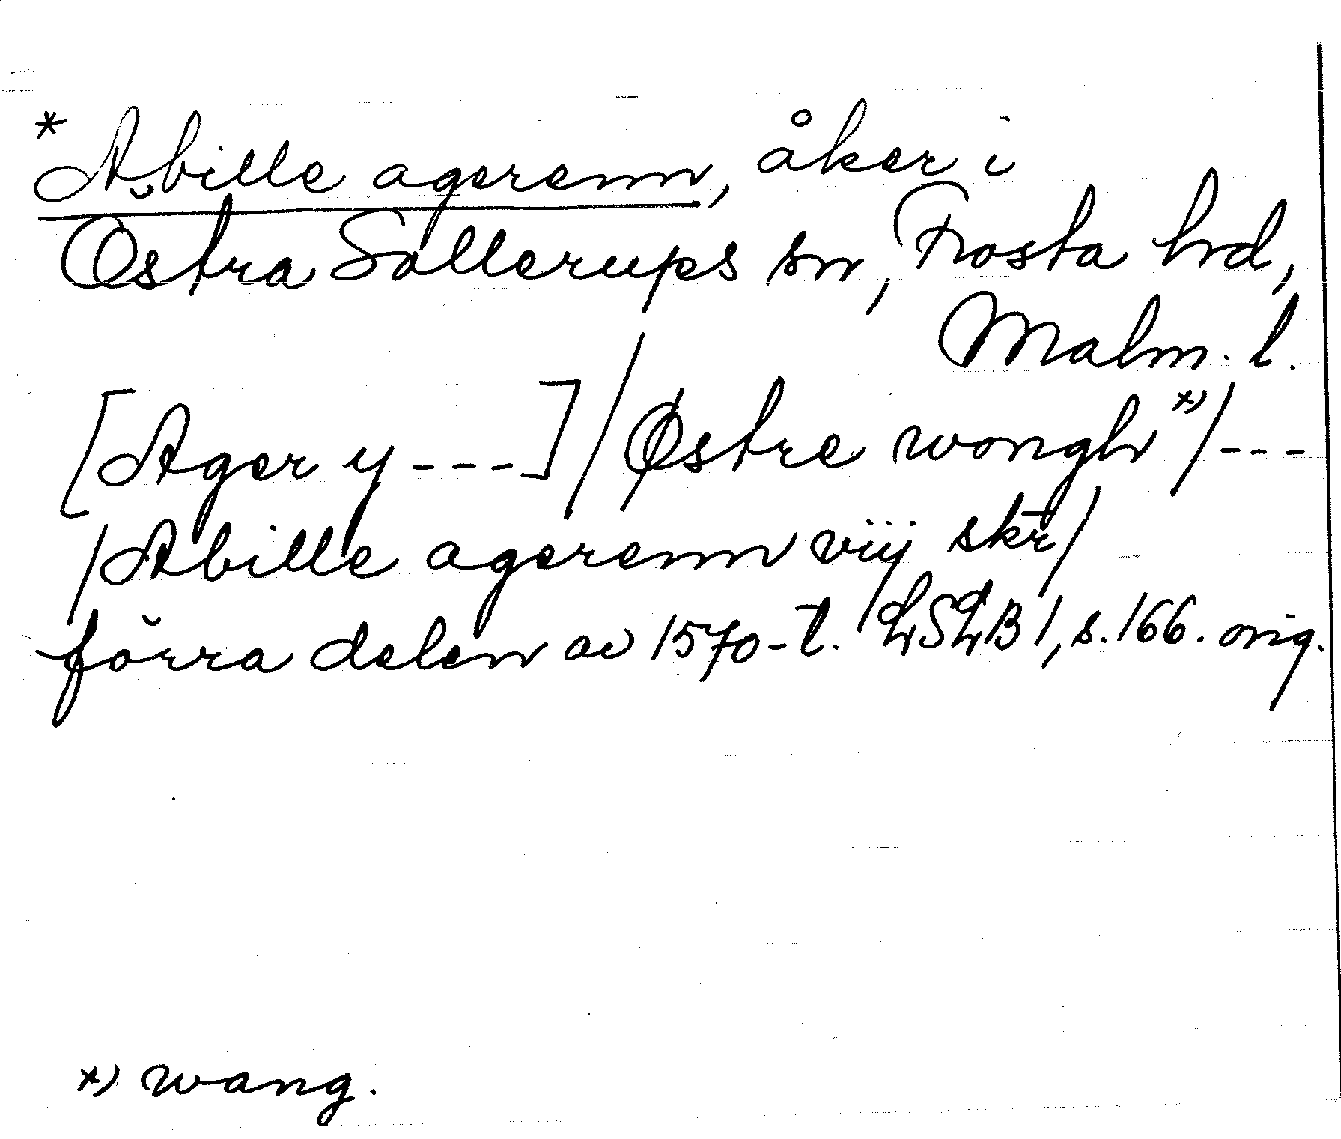 *Abille agerenn, åker i
Östra Sallerups sn, Frosta hrd,
Malm. l.
[Ager y ----] / Østre wongh *) / ---
/ Abille agerenn viij skr̄ /
förra delen av 1570-t. LSLB 1, s. 166. orig.
*) wang.